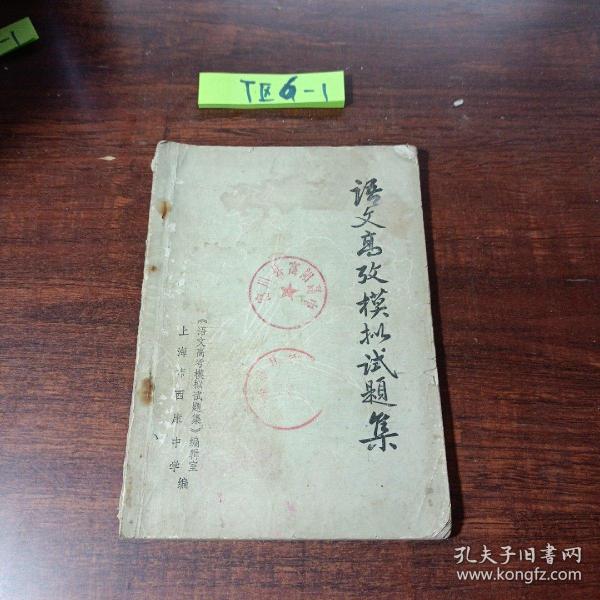 T区9-1
-1
语文高攷模拟试题集
《语文高考模拟试题集》编辑室
上海市西库中学编
孔夫子旧书网
www.kongfz.com